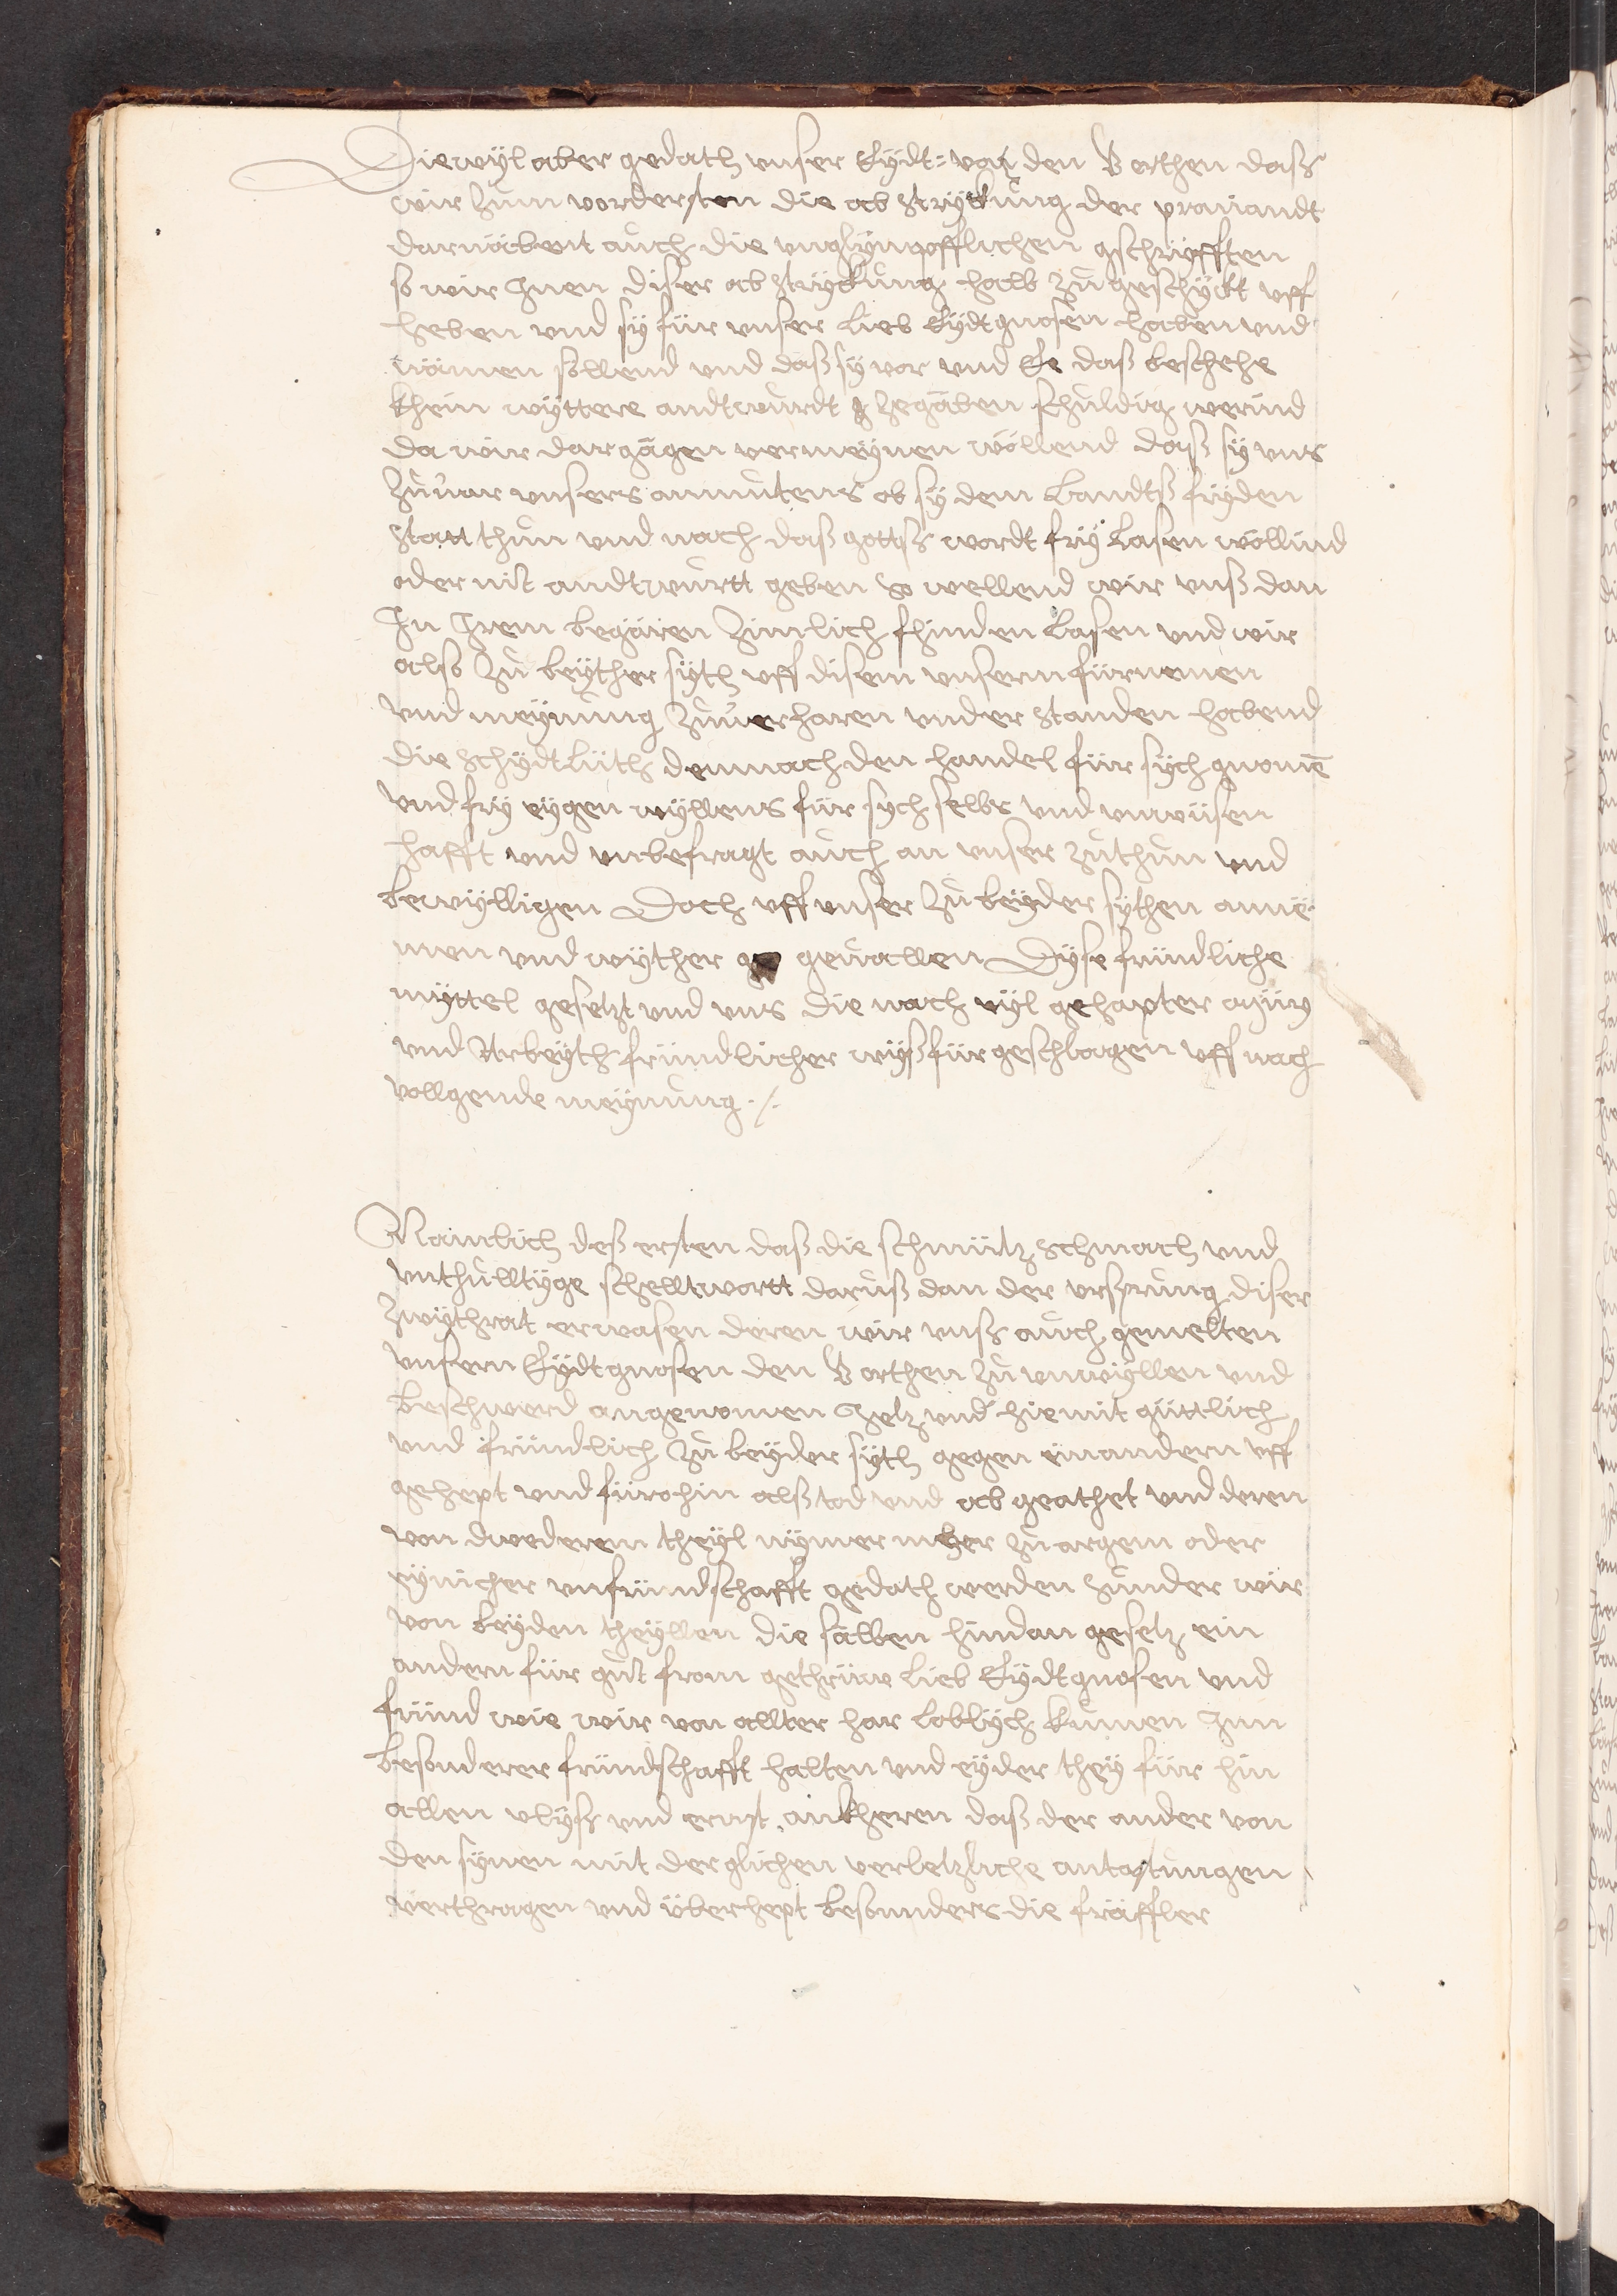 Diewyl aber gedath unser Eydt: von den 5 orthen dass
wir zum vordersten die ab strykung der prauiandt
darnäbent auch die unglympfflichen gschryfften
so wir Inen diser ab strykung halb zugeschykt uff
heben und sy für unser lieb Eydtgnosen haben und
nämen sollend und daß sy vor und Ee daß beschehe
khein wyttere andtwurdt zegäben schuldig werind
da wir dargägen vermeynen wöllend daß sy uns
zuuor unsers anmutens ob sy dem Landtß fryden
statt thun und nach daß gottß wordt fry lasen wöllind
oder nit andtwurtt geben so wellend wir unß dan
In Irem begären zimlich fhinden lasen und wir
also zu beyther syth uff disem unserm fürnemen
und meynung zuuerharen understanden habend
die schydtlüth demnach den handel für sych gnomē
und fry eygen wyllens für sych selbs und unwüsen
hafft und unbefragt auch an unser zuthun und
bewylligen Doch uff unser zu beyder sythen anne
men und wyther geuallen Dyse fründliche
myttel gesetzt und uns die nach vyl gehapter müy
und Arbeyth fründlicher wyß fürgeschlagen uff nach
vollgende meynung ./.
Namlich deß ersten daß die schmütz schmach und
unthulltyge schelltwortt daruß dan der ursprung diser
zwythrat erwasen deren wir unß auch gemelten
unsern Eydtgnosen den 5 orthen zu unwyllen und
beschwerd angenomen Jetz und hiemit güttlich
und fründlich zu beyder syth gegen einandern uff
gehept und fürohin alß tod und ab geathet und deren
von dwederem theyl nymer mher zu argem oder
eynicher unfründschafft gedath werden sunder wir
von beyden theyllen die sälben hindan gesetz ein
andern für gut from gethrüw lieb Eydtgnosen und
fründ wie wir von allter har loblych kumen Inn
besonderer fründschafft halten und eyder they für hin
allen vlyß und ernst ankheren daß der ander von
den synen mit der glichen verletzliche antastungen
verthragen und überhept besunders die fräffler